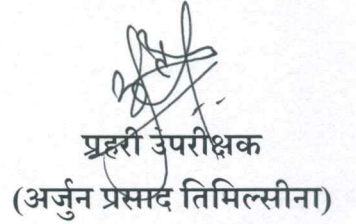 प्रहरी उपरीक्षक
(अर्जुन प्रसाद तिमिल्सीना)